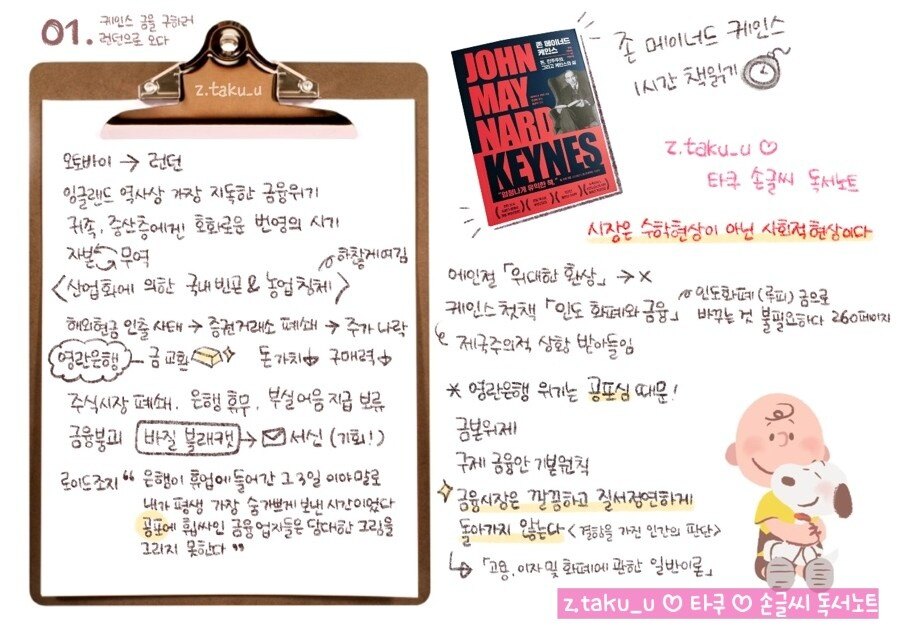 01. 케인스 금을 구하러
런던으로 오다
z.taku_u
오토바이 → 런던
잉글랜드 역사상 가장 지독한 금융위기
귀족, 중산층에겐 호화로운 번영의 시기
자본 무역
하찮게여김
<산업화에 의한 국내빈곤 & 농업침체>
해외현금 인출사태 → 증권거래소 폐쇄 → 주가 나락
영란은행 - 금교환 돈가치↓ 구매력↓
주식시장 폐쇄, 은행 휴무, 부실어음 지급 보류
금융붕괴 바질 블래캣 → 서신 (기회!)
로이드조지 " 은행이 휴업에 들어간 그 3일 이야말로
내가 평생 가장 숨가쁘게 보낸 시간이었다
공포에 휩싸인 금융업자들은 담대한 그림을
그리지 못한다 "
존 메이너드 케인스
JOHN
MAY
NARD
KEYNES
존 메이너드 케인스
1시간 책읽기
z.taku_u ♡
타쿠 손글씨 독서노트
시장은 수학현상이 아닌 사회적현상이다
에인절 「위대한 환상」 → ×
케인스 첫책 「인도 화폐와 금융」 인도화폐 (루피) 금으로
바꾸는 것 불필요하다 260페이지
제국주의적 상황 받아들임
* 영란은행 위기는 공포심 때문!
금본위제
구제 금융안 기본원칙
금융시장은 깔끔하고 질서정연하게
돌아가지 않는다 <결함을 가진 인간의 판단>
「고용, 이자 및 화폐에 관한 일반이론」
z.taku_u ♡ 타쿠 ♡ 손글씨 독서노트